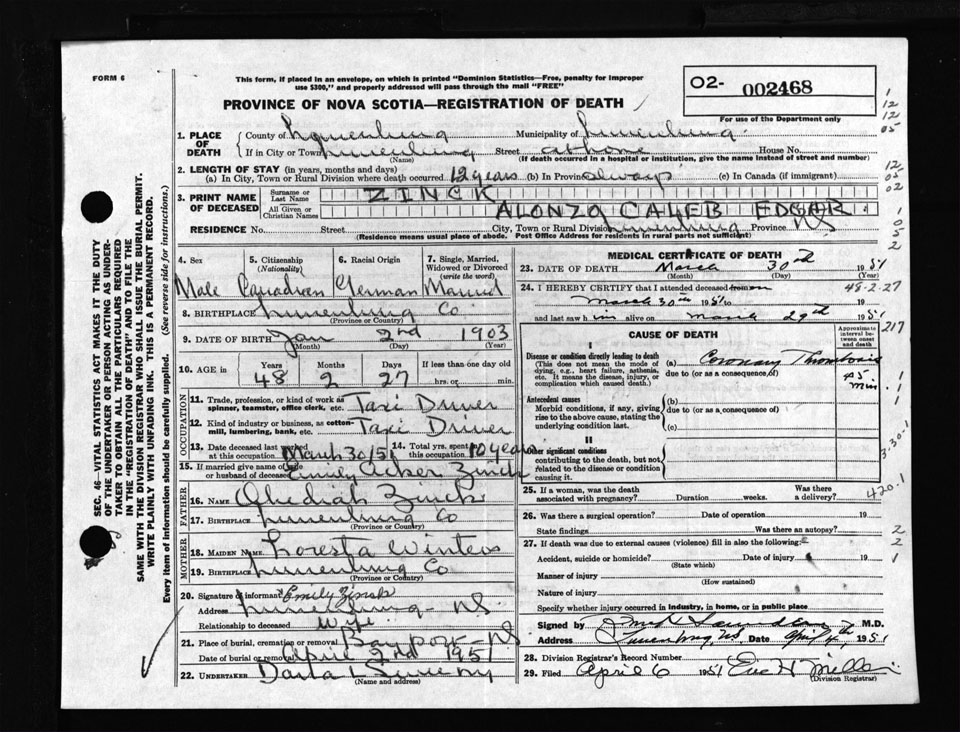 FORM 6
This form, if placed in an envelope, on which is printed "Dominion Statistics—Free, penalty for improper
use $300," and properly addressed will pass through the mail "FREE"
PROVINCE OF NOVA SCOTIA—REGISTRATION OF DEATH
02- 002468
For use of the Department only
1. PLACE OF DEATH
County of Lunenburg Municipality of Lunenburg
If in City or Town Lunenburg Street at home House No.
(Name) (If death occurred in a hospital or institution, give the name instead of street and number)
2. LENGTH OF STAY (in years, months and days)
(a) In City, Town or Rural Division where death occurred 12 years (b) In Province always (c) In Canada (if immigrant)
3. PRINT NAME OF DECEASED
Surname or Last Name ZINCK
All Given or Christian Names ALONZO CALEB EDGAR
RESIDENCE No. Street City, Town or Rural Division Lunenburg Province NS
(Residence means usual place of abode. Post Office Address for residents in rural parts not sufficient)
4. Sex Male
5. Citizenship (Nationality) Canadian
6. Racial Origin German
7. Single, Married, Widowed or Divorced (write the word) Married
8. BIRTHPLACE Lunenburg Co.
(Province or Country)
9. DATE OF BIRTH Jan 2nd 1903
(Month) (Day) (Year)
10. AGE Years Months Days If less than one day
48 2 27 hrs. or min.
OCCUPATION
11. Trade, profession or kind of work as spinner, teamster, office clerk, etc. Taxi Driver
12. Kind of industry or business, as cotton-mill, lumbering, bank, etc. Taxi Driver
13. Date deceased last worked at this occupation March 30/51
14. Total yrs. spent in this occupation 10 years
15. If married give name of wife or husband of deceased Emily Acker Zinck
FATHER
16. NAME Obediah Zinck
17. BIRTHPLACE Lunenburg Co
(Province or Country)
MOTHER
18. MAIDEN NAME Loresta Winters
19. BIRTHPLACE Lunenburg Co
(Province or Country)
20. Signature of informant Emily Zinck
Address Lunenburg NS
Relationship to deceased Wife
21. Place of burial, cremation or removal Bayport NS
Date of burial or removal April 2nd 1951
22. UNDERTAKER
(Name and address)
MEDICAL CERTIFICATE OF DEATH
23. DATE OF DEATH March 30th 1951
(Month) (Day)
24. I HEREBY CERTIFY that I attended deceased from on
March 30th 1951 to 19
and last saw him alive on March 29th 1951
48-2-27
217
CAUSE OF DEATH
Approximate interval between onset and death
I
Disease or condition directly leading to death
(This does not mean the mode of dying, e.g., heart failure, asthenia, etc. It means the disease, injury, or complication which caused death.)
(a) Coronary Thrombosis
due to (or as a consequence of)
45 min.
Antecedent causes
Morbid conditions, if any, giving rise to the above cause, stating the underlying condition last.
(b)
due to (or as a consequence of)
(c)
II
Other significant conditions
contributing to the death, but not related to the disease or condition causing it.
3.30.1
420.1
25. If a woman, was the death associated with pregnancy? Duration weeks. Was there a delivery?
26. Was there a surgical operation? Date of operation 19
State findings Was there an autopsy?
27. If death was due to external causes (violence) fill in also the following:
Accident, suicide or homicide? Date of injury 19
(State which)
Manner of injury
(How sustained)
Nature of injury
Specify whether injury occurred in industry, in home, or in public place
Signed by M.D.
Address Lunenburg NS. Date April 4th, 1951
28. Division Registrar's Record Number
29. Filed April 6 1951
(Division Registrar)
SEC. 46—VITAL STATISTICS ACT MAKES IT THE DUTY
OF THE UNDERTAKER OR PERSON ACTING AS UNDER-
TAKER TO OBTAIN ALL THE PARTICULARS REQUIRED
IN THE "REGISTRATION OF DEATH" AND TO FILE THE
SAME WITH THE DIVISION REGISTRAR WHO SHALL ISSUE THE BURIAL PERMIT.
WRITE PLAINLY WITH UNFADING INK. THIS IS A PERMANENT RECORD.
Every item of information should be carefully supplied. (See reverse side for instructions.)